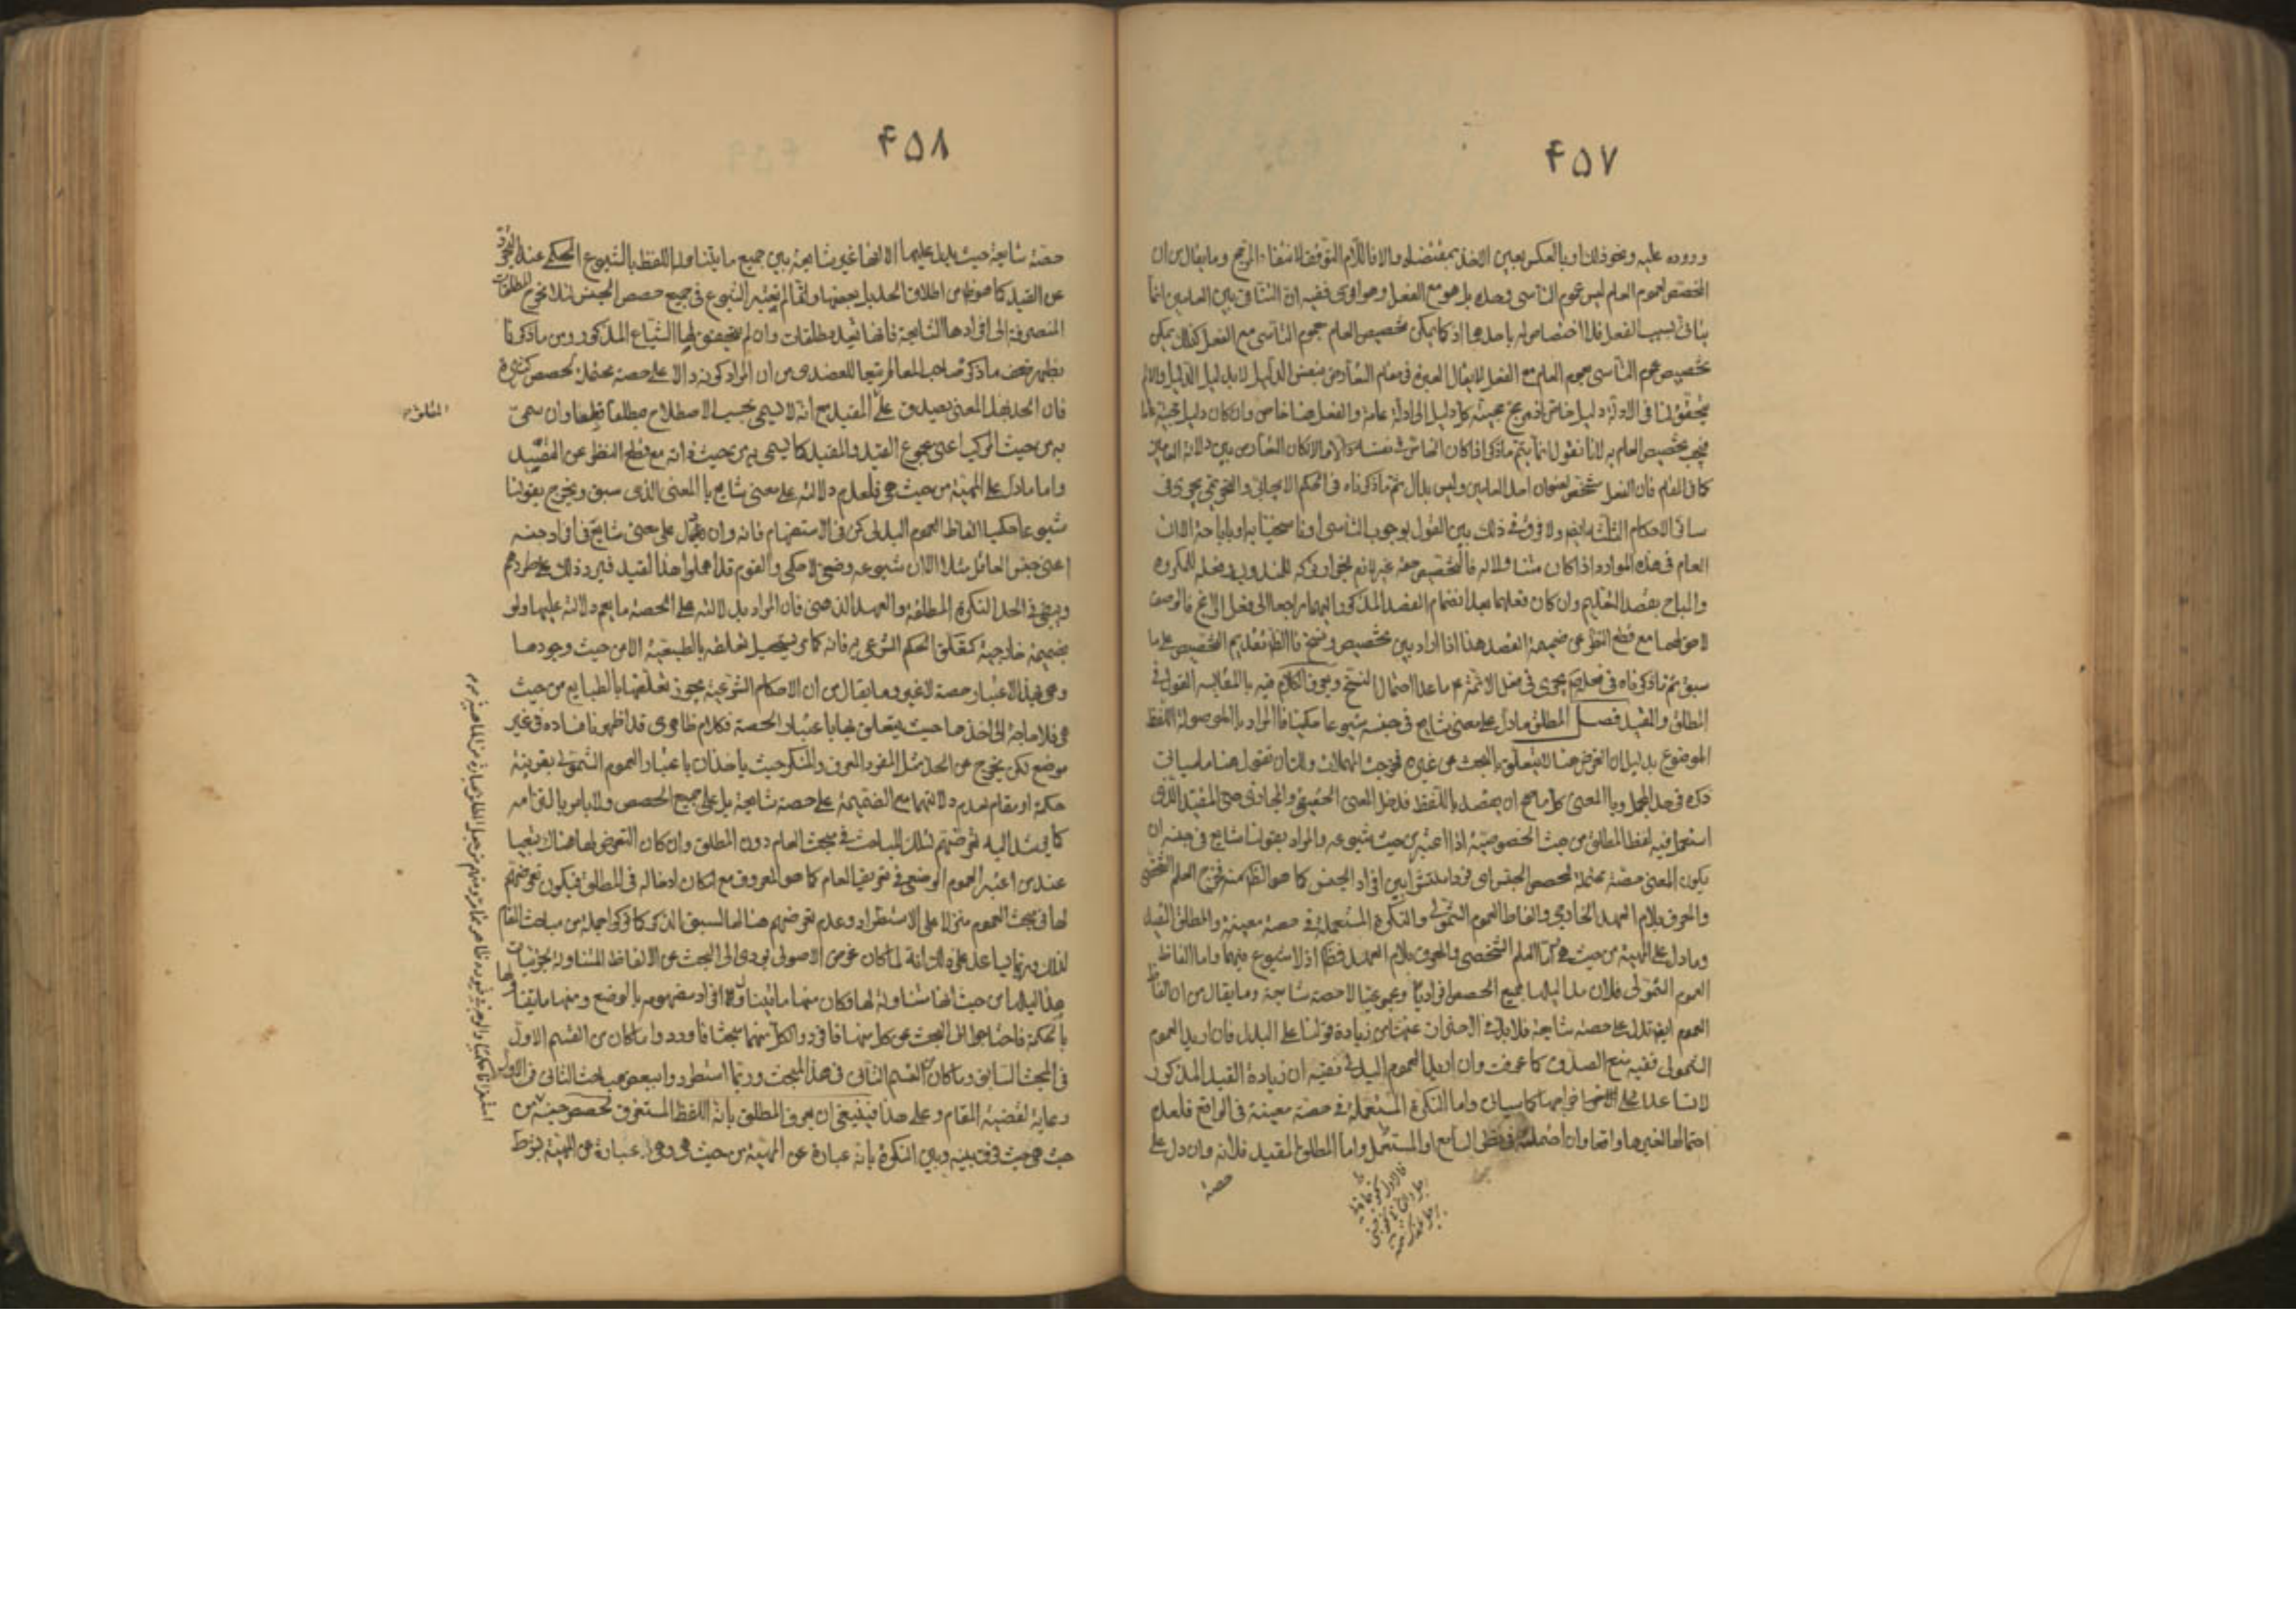 ۴۵۷
وروده عليه ونحو ذلك او بالعكس يعين الاخذ بمقتضاه والا فاللازم التوقف لانتفاء المرجح وما يقال من ان
المخصص لعموم العام ليس عموم التأسى وحده بل هو مع الفعل وهو اقوى ففيه ان التنافى بين العامين انما
بسبب الفعل فلا اختصاص له باحدهما اذ كما يمكن تخصيص العام بعموم التأسى مع الفعل كذلك يمكن
تخصيص عموم التأسى بعموم العام مع الفعل لا يقال العبرة فى مقام التعارض بنفس الدليل لا بدليل الدليل والا لم
يتحقق لنا فى الادلة دليل خاص اذ مرجع حجية كل دليل الى ادلة عامة والفعل هنا خاص وان كان دليل حجيته عاما
فيجب تخصيص العام به لانا نقول انما يتم ما ذكر اذا كان الخاص فى نفسه دليلا والا كان التعارض بين دلالة العامين
كما فى المقام فان الفعل مشخص لعنوان احد العامين وليس بدال ثم ما ذكرناه فى الحكم الايجابى والتحريمى يجرى فى
سائر الاحكام الثلثة ايضا ولا فرق فى ذلك بين القول بوجوب التأسى او باستحبابه او باباحته الا ان
العام فى هذه الموارد اذا كان متناولا له فالتخصيص جهة غير لازم لجواز تركه للمندوب وفعله للمكروه
والمباح بقصد التعليم وان كان فعلهما بعد انضمام القصد المذكور اليهما راجعا الى فعل الراجح فالوصف
لاحق لهما مع قطع النظر عن ضميمة القصد هذا اذا دار بين تخصيص ونسخ فالظاهر تقديم التخصيص على ما
سبق ثم ما ذكرناه فى فعله يجرى فى فعل الائمة ع ما عدا احتمال النسخ ويعرف الكلام فيه بالمقايسة القول فى
المطلق والمقيد فصل المطلق ما دل على معنى شايع فى جنسه شيوعا حكميا فالمراد بالموصولة اللفظ
الموضوع بدليل ان الغرض هنا لا يتعلق بالبحث عن غيره فخرجت المهملات ولك ان تقول هنا ما سيأتى
ذكره فى حد المجمل وبالمعنى كل ما صح ان يقصد باللفظ فدخل المعنى الحقيقى والمجازى حتى المقيد الذى
استعمل فيه لفظ المطلق من حيث الخصوصية اذا اعتبر من حيث شيوعه والمراد بقولنا شايع فى جنسه ان
يكون المعنى حصة محتملة لحصص الجنس اى فردا منتشرا بين افراد الجنس كما هو الظاهر منه فخرج العلم الشخصى
والمعرف بلام العهد الخارجى والفاظ العموم الشمولى والنكرة المستعملة فى حصة معينة والمطلق المقيد
وما دل على المهية من حيث هى اما العلم الشخصى والمعرف بلام العهد فظاهر اذ لا شيوع فيهما واما الفاظ
العموم الشمولى فلان مداليلها جميع الحصص افراديا ومجموعيا لا حصة شايعة وما يقال من ان الفاظ
العموم ايضا تدل على حصة شايعة فلا بد فى الاحتراز عنها من زيادة قولنا على البدل فان اريد العموم
الشمولى ففيه منع الصدق كما عرفت وان اريد العموم البدلى ففيه ان زيادة القيد المذكور
لا تساعد على اخراجها كما سيأتى واما النكرة المستعملة فى حصة معينة فى الواقع فلعدم
احتمالها لغيرها واقعا وان احتملته فى نظر السامع او المستعمل واما المطلق المقيد فلانه وان دل على
حصة
۴۵۸
حصة شايعة حيث يدل عليها الا انها غير شايعة بين جميع ما يتناوله اللفظ بالشيوع الحكمى عند التجرد
عن القيد كما هو ظاهر من اطلاق الحد بل بعضها وانما لم نعتبر الشيوع فى جميع حصص الجنس لئلا يخرج المطلقات
المنصرفة الى افرادها الشايعة فانها تعد مطلقات وان لم يتحقق لها الشياع المذكور ومن ما ذكرنا
يظهر ضعف ما ذكره صاحب المعالم تبعا للعضدى من ان المراد كونه دالا على حصة محتملة لحصص كثيرة
فان الحد بهذا المعنى يصدق على المقيد مع انه لا يسمى بحسب الاصطلاح مطلقا قطعا وان سمى
المطلق
به من حيث المركب اعنى مجموع القيد والمقيد كما يسمى به من حيث ذاته مع قطع النظر عن التقييد
واما ما دل على المهية من حيث هى فلعدم دلالته على معنى شايع بالمعنى الذى سبق ويخرج بقولنا
شيوعا حكميا الفاظ العموم البدلى كمن فى الاستفهام فانه وان دل على معنى شايع فى افراد جنسه
اعنى جنس العاقل مثلا الا ان شيوعه وضعى لا حكمى والقوم قد اهملوا هذا القيد فيرد ذلك على طردهم
ويبقى فى الحد النكرة المطلقة والعهد الذهنى فان المراد بدلالته على الحصة ما يعم دلالته عليها ولو
بضميمة خارجية كتعلق الحكم الشرعى به فانه كما مر يستحيل تعلقه بالطبيعة الا من حيث وجودها
وهى بهذا الاعتبار حصة لا غير وما يقال من ان الاحكام الشرعية يجوز تعلقها بالطبايع من حيث
هى فلا حاجة الى اخذها حيث يتعلق بها باعتبار الحصة فكلام ظاهرى قد اظهرنا فساده فى غير
موضع لكن يخرج عن الحد مثل المفرد المعرف والمنكر حيث يأخذان باعتبار العموم الشمولى بقرينة
حكمة او مقام لعدم دلالتهما مع الضميمة على حصة شايعة بل على جميع الحصص ولا بأس بالتزامه
كما يرشد اليه تعرضهم لتلك المباحث فى مبحث العام دون المطلق وان كان التعرض لها هناك تبعيا
عند من اعتبر العموم الوضعى فى تعريف العام كما هو المعروف مع امكان ادخاله فى المطلق فيكون تعرضهم
لها فى مبحث العموم منزلا على الاستطراد وعدم تعرضهم هنا لها لسبق الذكر كما تركوا جملة من مباحث العام
لذلك وربما يساعد على ذلك انه لما كان غرض الاصولى يؤدى الى البحث عن الالفاظ المتناولة لجزئيات
مداليلها من حيث انها متناولة لها وكان منها ما يتناول افراد مفهومه بالوضع ومنها ما يتناولها
بالحكمة فاحتاجوا الى البحث عن كل منها فافردوا لكل منهما مبحثا فاوردوا ما كان من القسم الاول
فى المبحث السابق وما كان من القسم الثانى فى هذا المبحث وربما استطردوا ببعض مباحث الثانى فى الاول
رعاية لقضية المقام وعلى هذا فينبغى ان يعرف المطلق بانه اللفظ المستغرق لحصص جنسه من
حيث هى حيث فرق بينه وبين النكرة بانه عبارة عن المهية من حيث هى وهى عبارة عن المهية بشرط